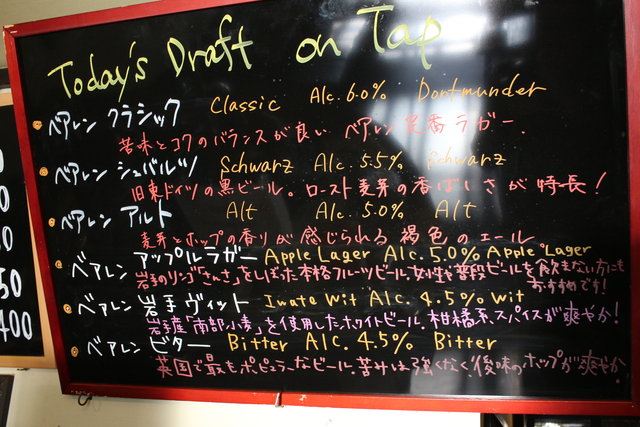 Today's Draft on Tap
ベアレン クラシック Classic Alc. 6.0% Dortmunder
苦味とコクのバランスが良い ベアレン定番ラガー.
ベアレン シュバルツ Schwarz Alc. 5.5% Schwarz
旧東ドイツの黒ビール。ロースト麦芽の香ばしさが特長!
ベアレン アルト Alt Alc. 5.0% Alt
麦芽とホップの香りが感じられる 褐色のエール
ベアレン アップルラガー Apple Lager Alc. 5.0% Apple Lager
岩手のリンゴ「さんさ」をしぼった本格フルーツビール. 女性や普段ビールを飲まない方にも
おすすめです!
ベアレン 岩手ヴィット Iwate Wit Alc. 4.5% Wit
岩手産「南部小麦」を使用したホワイトビール. 柑橘系、スパイスが爽やか!
ベアレン ビター Bitter Alc. 4.5% Bitter
英国で最もポピュラーなビール. 苦みは強くなく、後味のホップが爽やか.
50
400